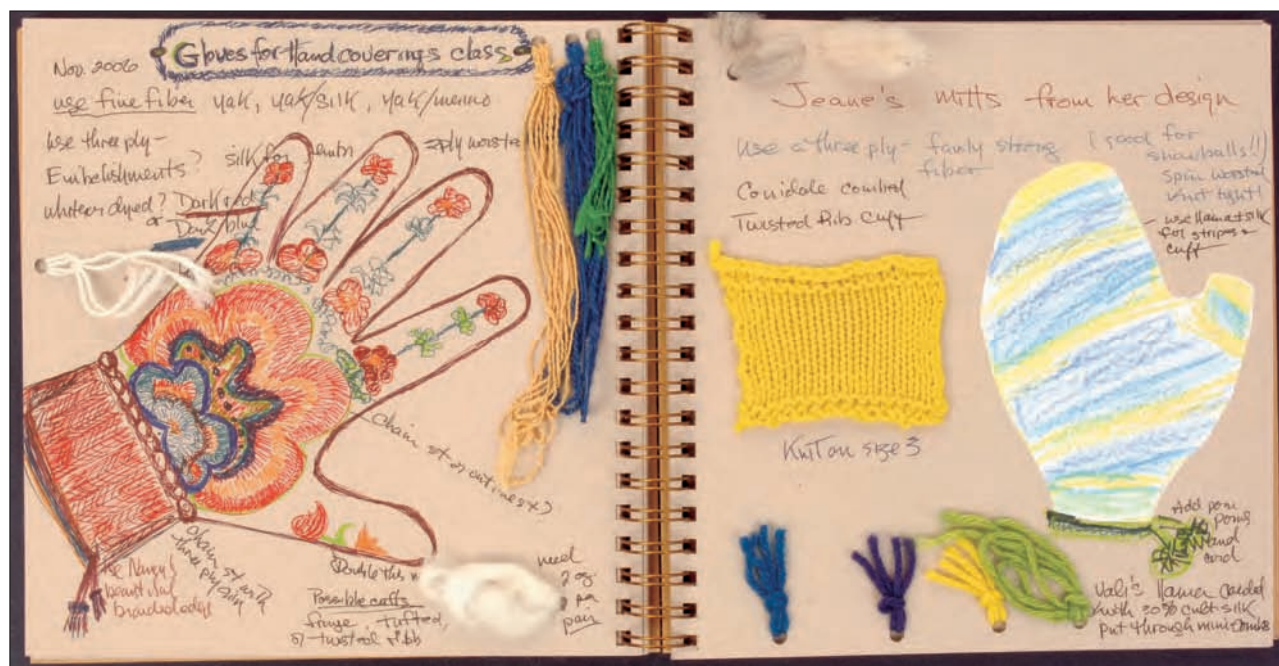 Nov. 2006
Gloves for Hand coverings class
use fine fiber yak, yak/silk, yak/merino
use three ply-
Embelishments?
silk for
2ply worsted
whatever dyed? Dark red
or Dark/blue
chain st on outlines x?
chain st with
three ply
use Nancy's
beautiful
Double this
Possible cuffs
fringe, tufted,
or twisted ribb
need
2 oz
pair
Jeane's Mitts from her design
Use a three ply - fairly strong
fiber
(good for
snowballs!!)
spin worsted
knit tight!
Twisted Rib Cuff
- use llama & silk
for stripes &
cuff
Knit on size 3
Add pom
poms
and
cord
llama carded
with 30% cult silk
put through mini combs